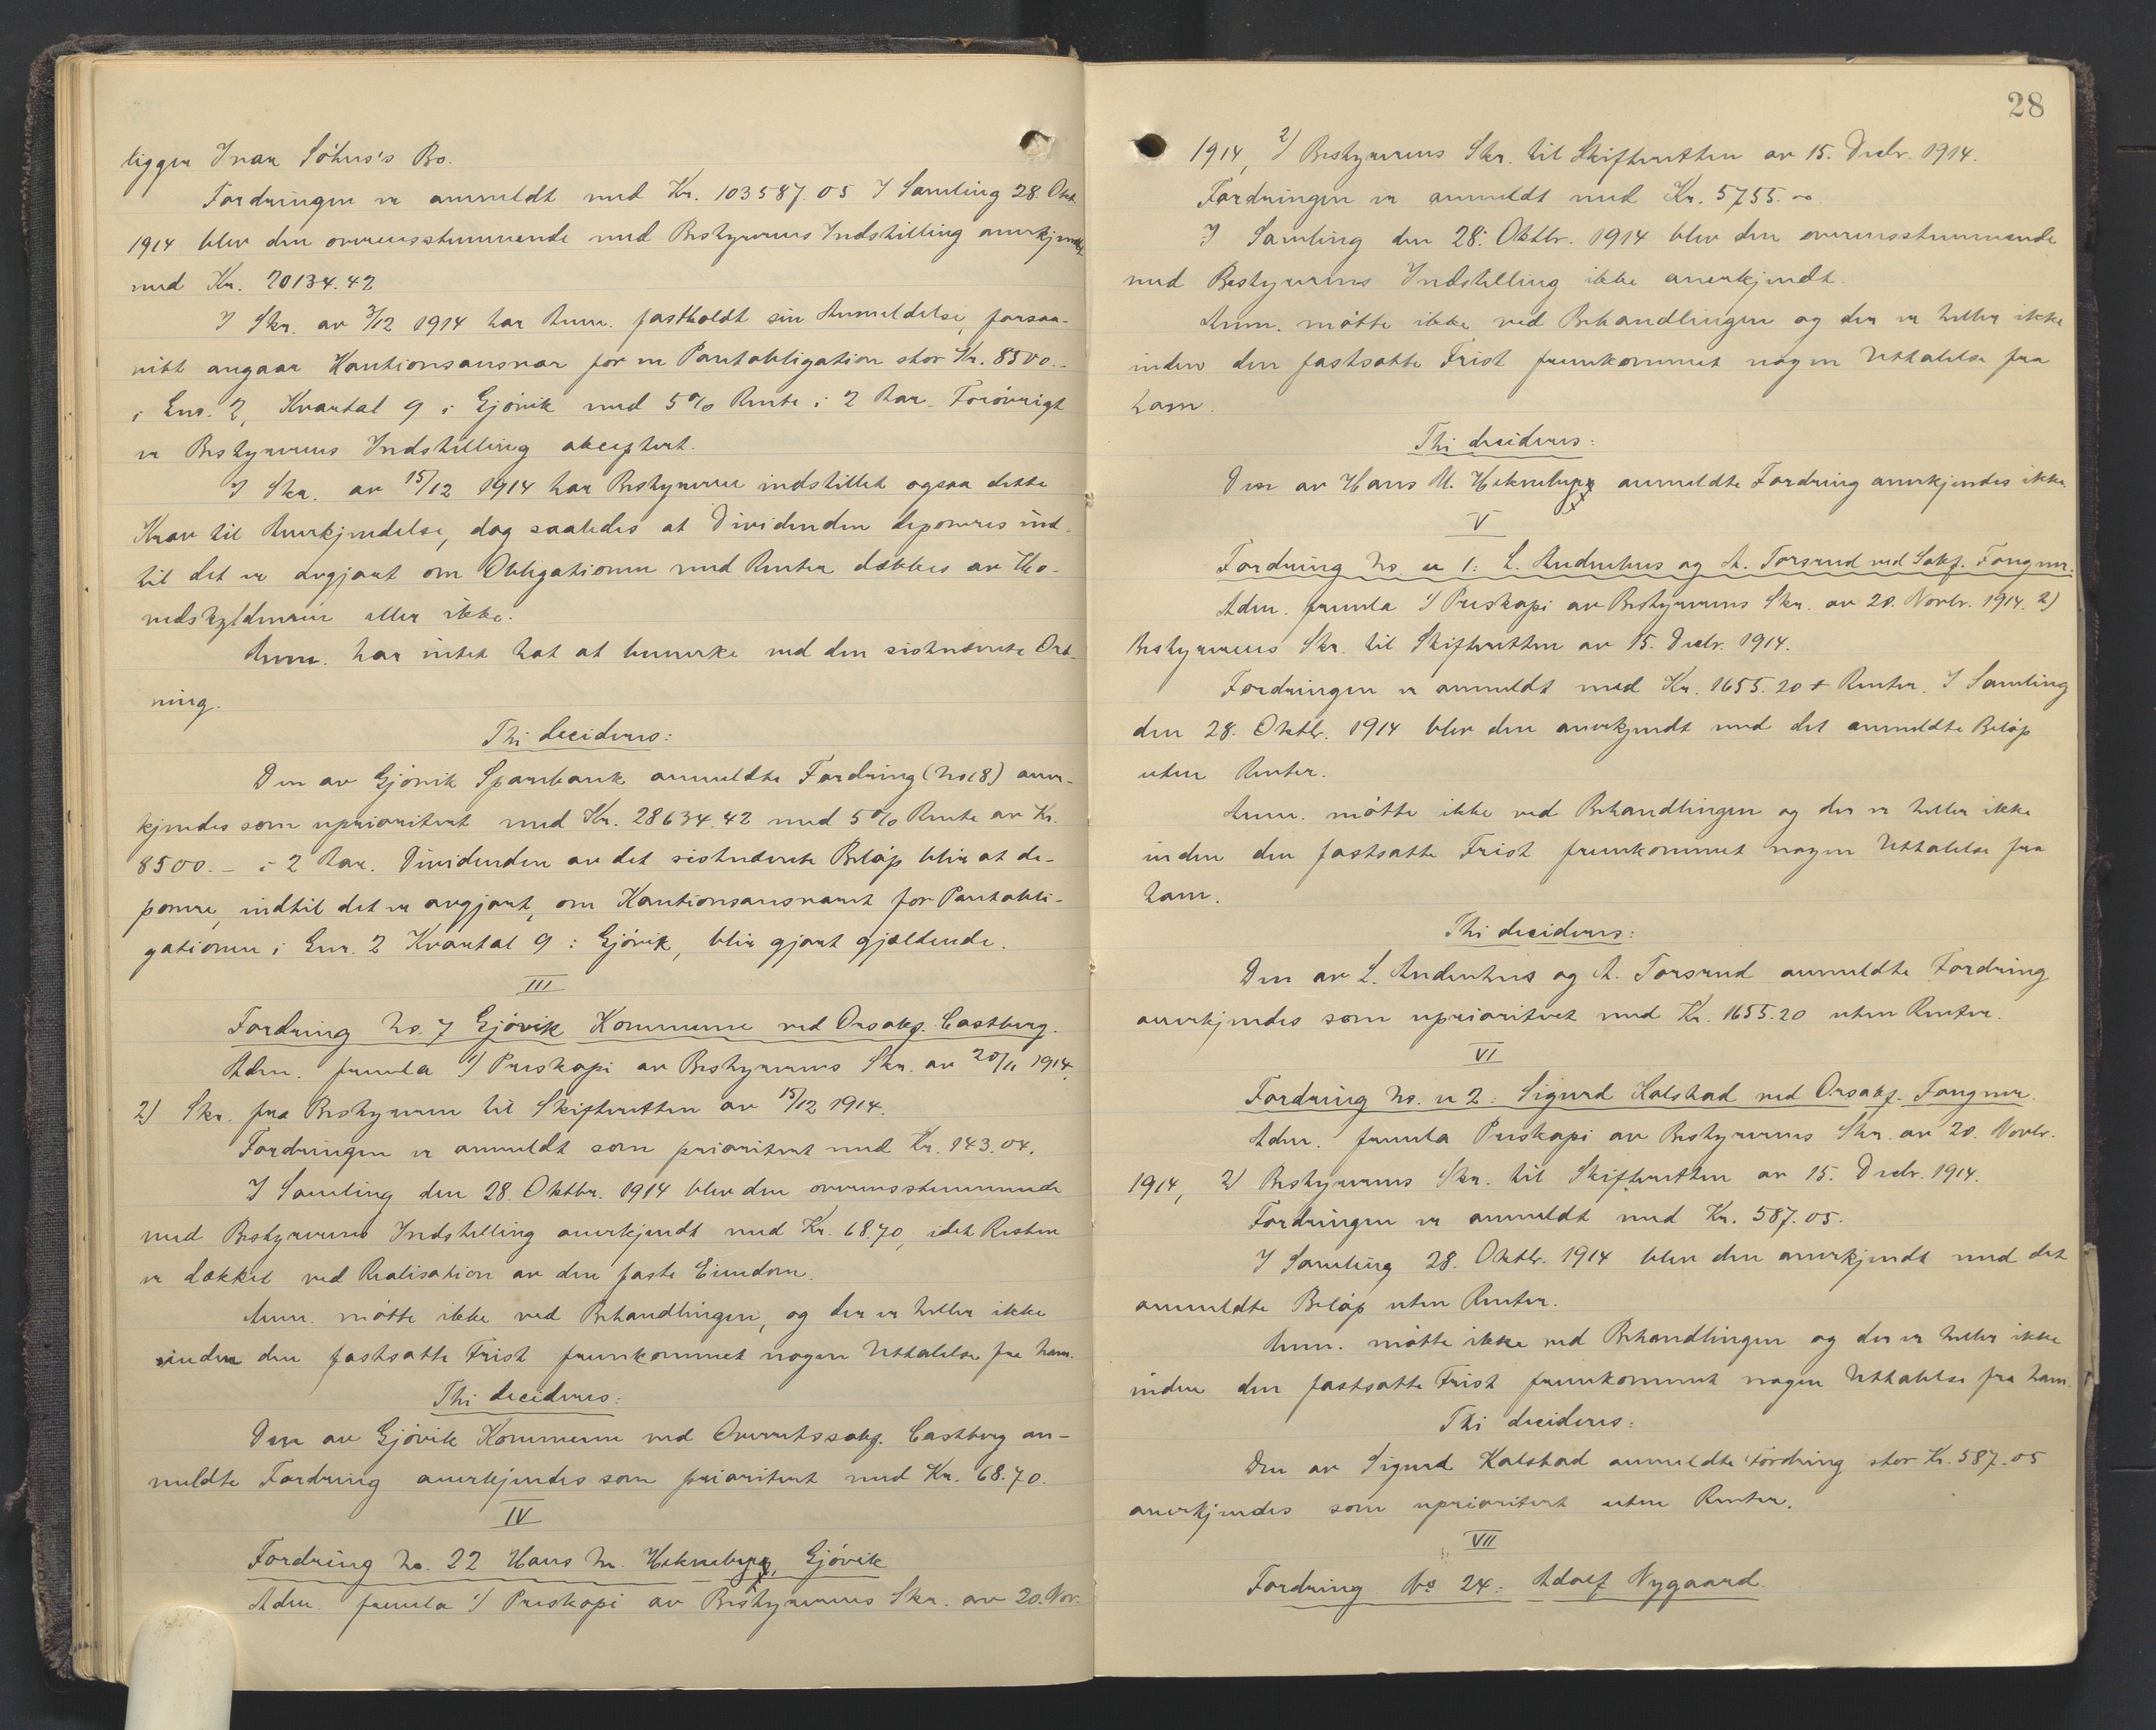 ligger Ivar Söhus's Bo.
Fordringen er anmeldt med Kr. 103587.05 I Samling 28. Okt.
1914 blev den overensstemmende med Bestyrerens Indstilling anerkjendt
med Kr. 20134.42
I Skr. av 3/12 1914 har Anm. fastholdt sin Anmeldelse, forsaa-
vitt angaar Kautionsansvar for en Pantobligation stor Kr. 8500.-
i Enr. 2, Kvartal 9 i Gjövik med 5% Rente i 2 Aar. Forövrigt
er Bestyrerens Indstilling akceptert.
I Skr. av 15/12 1914 har Bestyreren indstillet ogsaa dette
Krav til Anerkjendelse, dog saaledes at Dividenden deponeres ind-
til det er avgjort om Obligationen med Renter dækkes av Ho-
vedskyldneren eller ikke.
Anm. har intet hat at bemerke ved den sistnævnte Ord-
ning.
Thi decideres:
Den av Gjövik Sparebank anmeldte Fordring (No 18) aner-
kjendes som uprioritert med Kr. 28634.42 med 5% Rente av Kr.
8500.- i 2 Aar. Dividenden av det sistnævnte Belöp blir at de-
ponere, indtil det er avgjort, om Kautionsansvaret for Pantobli-
gationen i Enr. 2 Kvartal 9 i Gjövik, blir gjort gjældende.
III
Fordring No. 7 Gjövik Kommune ved Orsakf. Castberg.
Adm. fremla 1) Preskopi av Bestyrerens Skr. av 20/11 1914,
2) Skr. fra Bestyreren til Skifteretten av 15/12 1914.
Fordringen er anmeldt som prioritert med Kr. 143.04.
I Samling den 28. Oktbr. 1914 blev den overensstemmende
med Bestyrerens Indstilling anerkjendt med Kr. 68.70, idet Resten
er dækket ved Realisation av den faste Eiendom.
Anm. mötte ikke ved Behandlingen, og der er heller ikke
inden den fastsatte Frist fremkommet nogen Uttalelse fra ham.
Thi decideres:
Den av Gjövik Kommune ved Overretssakf. Castberg an-
meldte Fordring anerkjendes som prioritert med Kr. 68.70.
IV
Fordring No. 22 Hans M. Gjövik
Adm. fremla 1) Preskopi av Bestyrerens Skr. av 20. Nov.
28
1914, 2) Bestyrerens Skr. til Skifteretten av 15. Decbr. 1914.
Fordringen er anmeldt med Kr. 5755.00
I Samling den 28. Oktbr. 1914 blev den overensstemmende
med Bestyrerens Indstilling ikke anerkjendt.
Anm. mötte ikke ved Behandlingen og der er heller ikke
inden den fastsatte Frist fremkommet nogen Uttalelse fra
ham.
Thi decideres:
Den av Hans M. anmeldte Fordring anerkjendes ikke.
V
Fordring No. u 1: L. Audenhus og A. Torsrud ved Sakf. Fougner.
Adm. fremla 1) Preskopi av Bestyrerens Skr. av 20. Novbr. 1914. 2)
Bestyrerens Skr. til Skifteretten av 15. Decbr. 1914.
Fordringen er anmeldt med Kr. 1655.20 + Renter. I Samling
den 28. Oktbr. 1914 blev den anerkjendt med det anmeldte Belöp
uten Renter.
Anm. mötte ikke ved Behandlingen og der er heller ikke
inden den fastsatte Frist fremkommet nogen Uttalelse fra
ham.
Thi decideres:
Den av L. Audenhus og A. Torsrud anmeldte Fordring
anerkjendes som uprioritert med Kr. 1655.20 uten Renter.
VI
Fordring No. u 2: Sigurd Kalstad ved Orsakf. Fougner.
Adm. fremla Preskopi av Bestyrerens Skr. av 20. Novbr.
1914, 2) Bestyrerens Skr. til Skifteretten av 15. Decbr. 1914.
Fordringen er anmeldt med Kr. 587.05.
I Samling 28. Oktbr. 1914 blev den anerkjendt med det
anmeldte Belöp uten Renter.
Anm. mötte ikke ved Behandlingen og der er heller ikke
inden den fastsatte Frist fremkommet nogen Uttalelse fra ham.
Thi decideres:
Den av Sigurd Kalstad anmeldte Fordring stor Kr. 587.05
anerkjendes som uprioritert uten Renter.
VII
Fordring No 24: Adolf Nygaard.